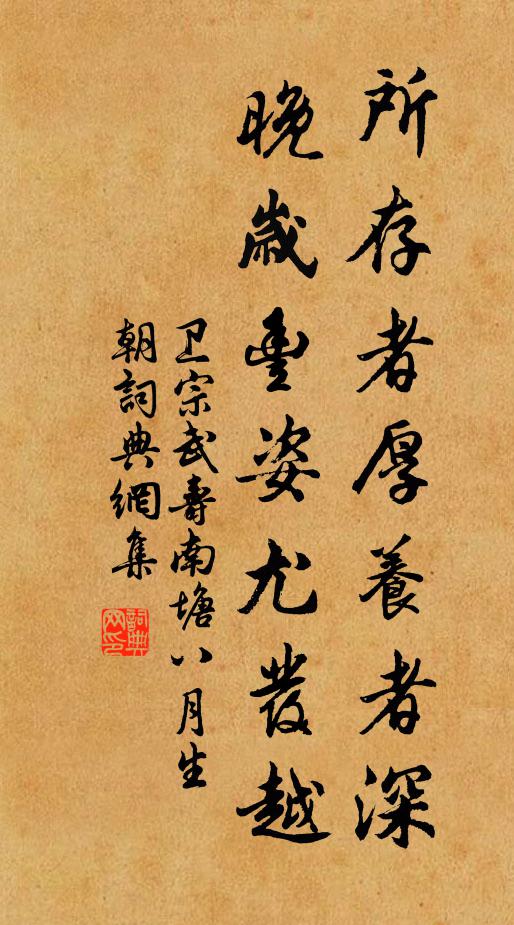 所存者厚養者深
晚歲豐姿尤發越
卫宗武壽南塘八月生
朝詞典網集
詞典
网印